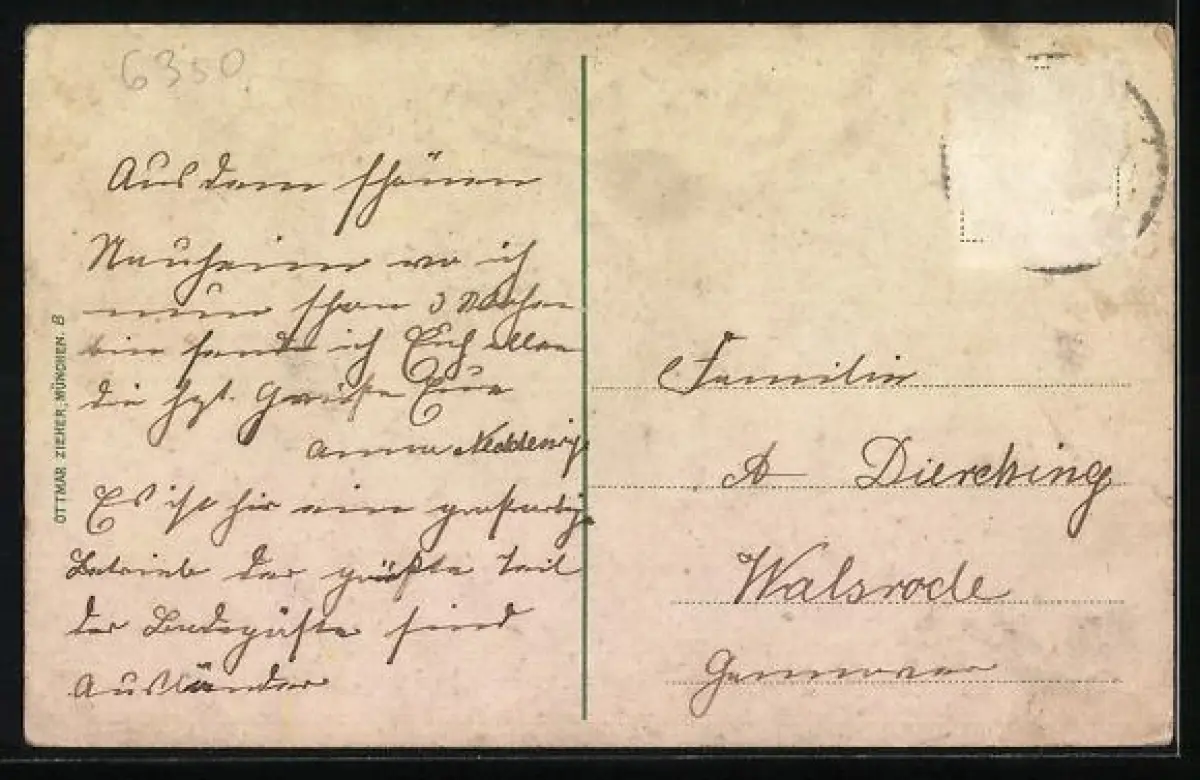 6350
Aus dem schönen
Nauheim wo ich
nun schon 3 Wochen
bin sende ich Euch allen
die hzl. Grüße Eure
Anna
Es ist hir ein großartig
Betrieb der größte Teil
der Badegäste sind
Ausländer
OTTMAR ZIEHER, MÜNCHEN. B
Familie
A Dierching
Walsrode
Hannover